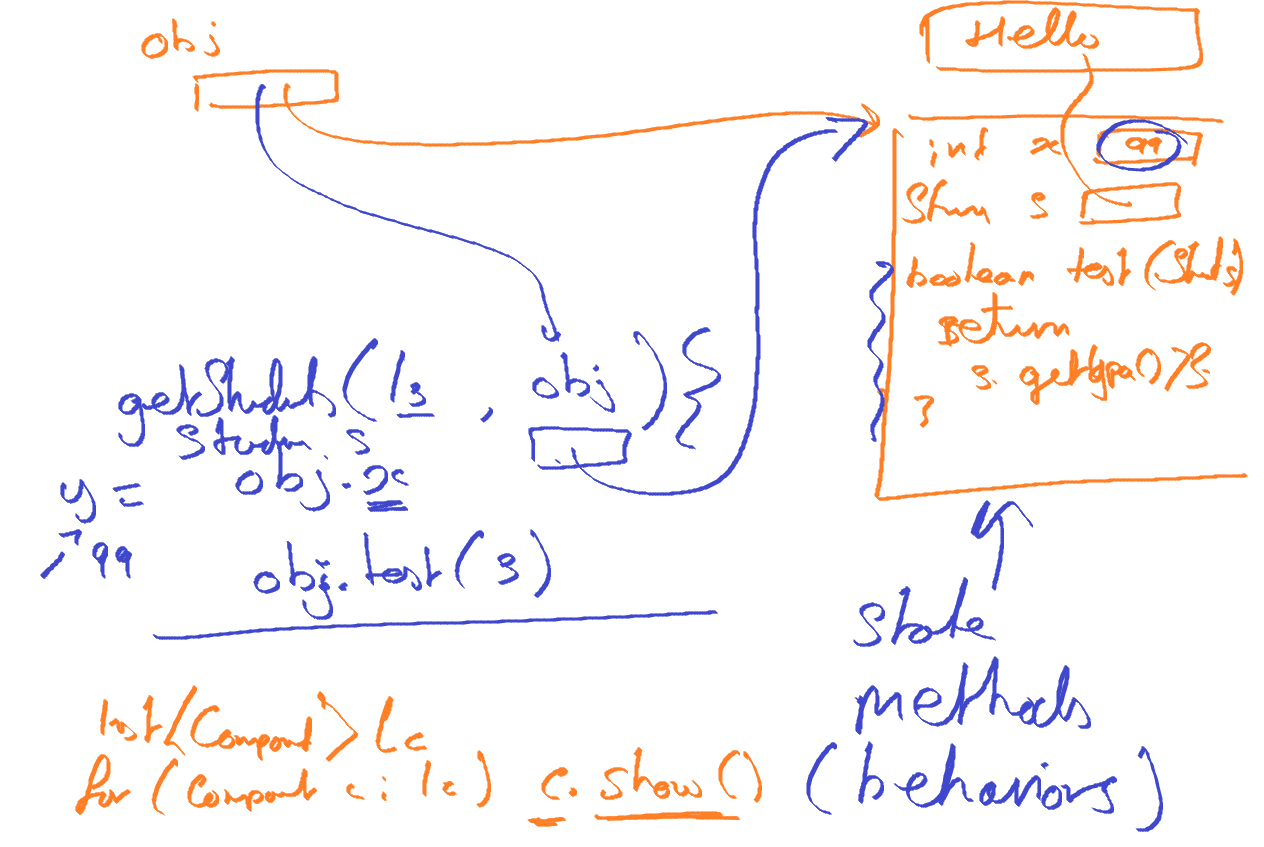 obj
Hello
int x 99
s
boolean test(
return
s. getgpa() > 3
}
getStudents(ls, obj) {
s
y = obj.x
99
obj.test(s)
State
methods
(behaviors)
List<Component> lc
for (Component c : lc) c.show()